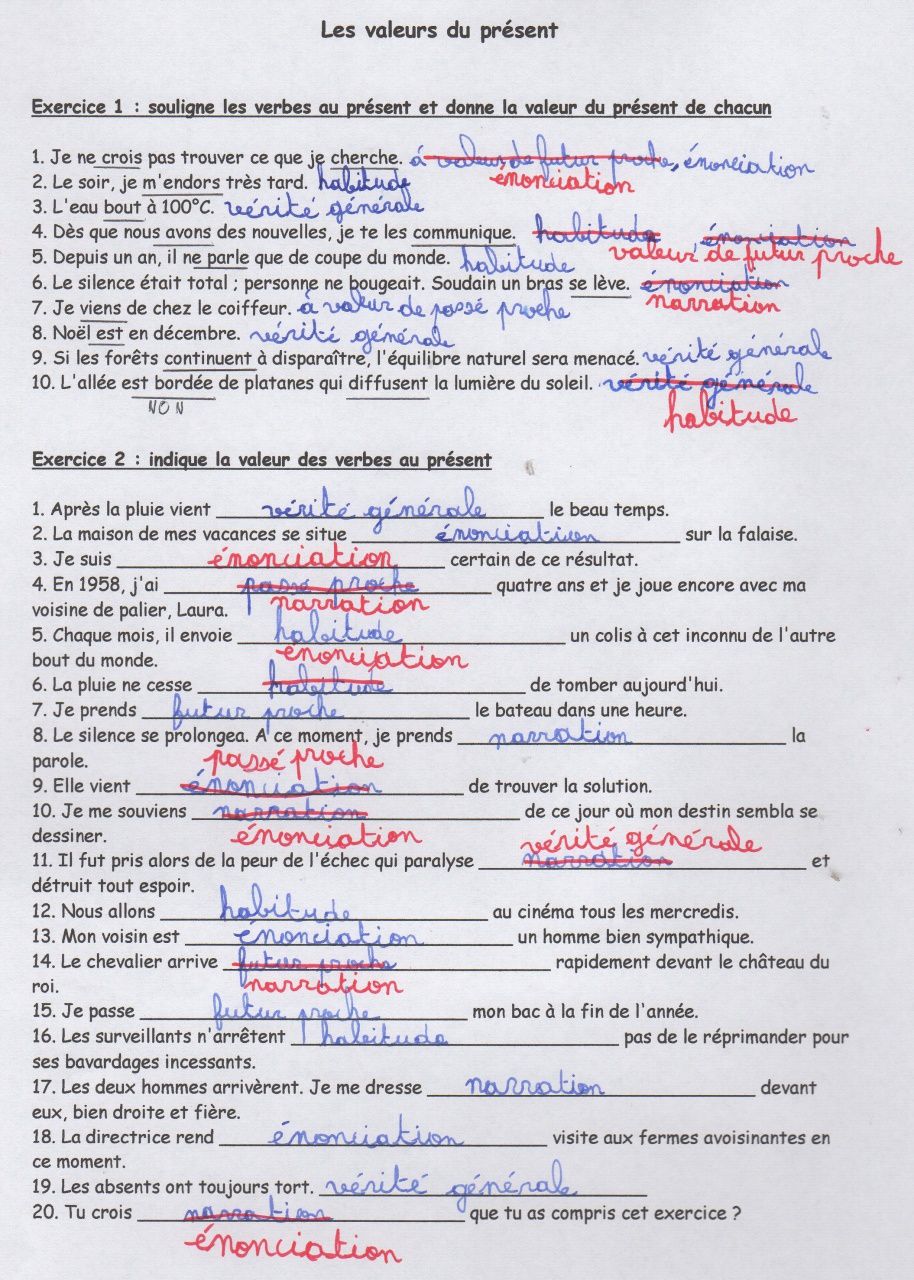 Les valeurs du présent
Exercice 1 : souligne les verbes au présent et donne la valeur du présent de chacun
1. Je ne crois pas trouver ce que je cherche. à valeur de futur proche, énonciation
énonciation
2. Le soir, je m'endors très tard. habitude
3. L'eau bout à 100°C. vérité générale
4. Dès que nous avons des nouvelles, je te les communique. habitude, énonciation
valeur de futur proche
5. Depuis un an, il ne parle que de coupe du monde. habitude
6. Le silence était total ; personne ne bougeait. Soudain un bras se lève. énonciation
narration
7. Je viens de chez le coiffeur. à valeur de passé proche
8. Noël est en décembre. vérité générale
9. Si les forêts continuent à disparaître, l'équilibre naturel sera menacé. vérité générale
10. L'allée est bordée de platanes qui diffusent la lumière du soleil. vérité générale
NON
habitude
Exercice 2 : indique la valeur des verbes au présent
1. Après la pluie vient vérité générale le beau temps.
2. La maison de mes vacances se situe énonciation sur la falaise.
3. Je suis énonciation certain de ce résultat.
4. En 1958, j'ai passé proche quatre ans et je joue encore avec ma
voisine de palier, Laura. narration
5. Chaque mois, il envoie habitude un colis à cet inconnu de l'autre
bout du monde. énonciation
6. La pluie ne cesse habitude de tomber aujourd'hui.
7. Je prends futur proche le bateau dans une heure.
8. Le silence se prolongea. A ce moment, je prends narration la
parole. passé proche
9. Elle vient énonciation de trouver la solution.
10. Je me souviens narration de ce jour où mon destin sembla se
dessiner. énonciation vérité générale
11. Il fut pris alors de la peur de l'échec qui paralyse narration et
détruit tout espoir.
12. Nous allons habitude au cinéma tous les mercredis.
13. Mon voisin est énonciation un homme bien sympathique.
14. Le chevalier arrive futur proche rapidement devant le château du
roi. narration
15. Je passe futur proche mon bac à la fin de l'année.
16. Les surveillants n'arrêtent habitude pas de le réprimander pour
ses bavardages incessants.
17. Les deux hommes arrivèrent. Je me dresse narration devant
eux, bien droite et fière.
18. La directrice rend énonciation visite aux fermes avoisinantes en
ce moment.
19. Les absents ont toujours tort. vérité générale
20. Tu crois narration que tu as compris cet exercice ?
énonciation